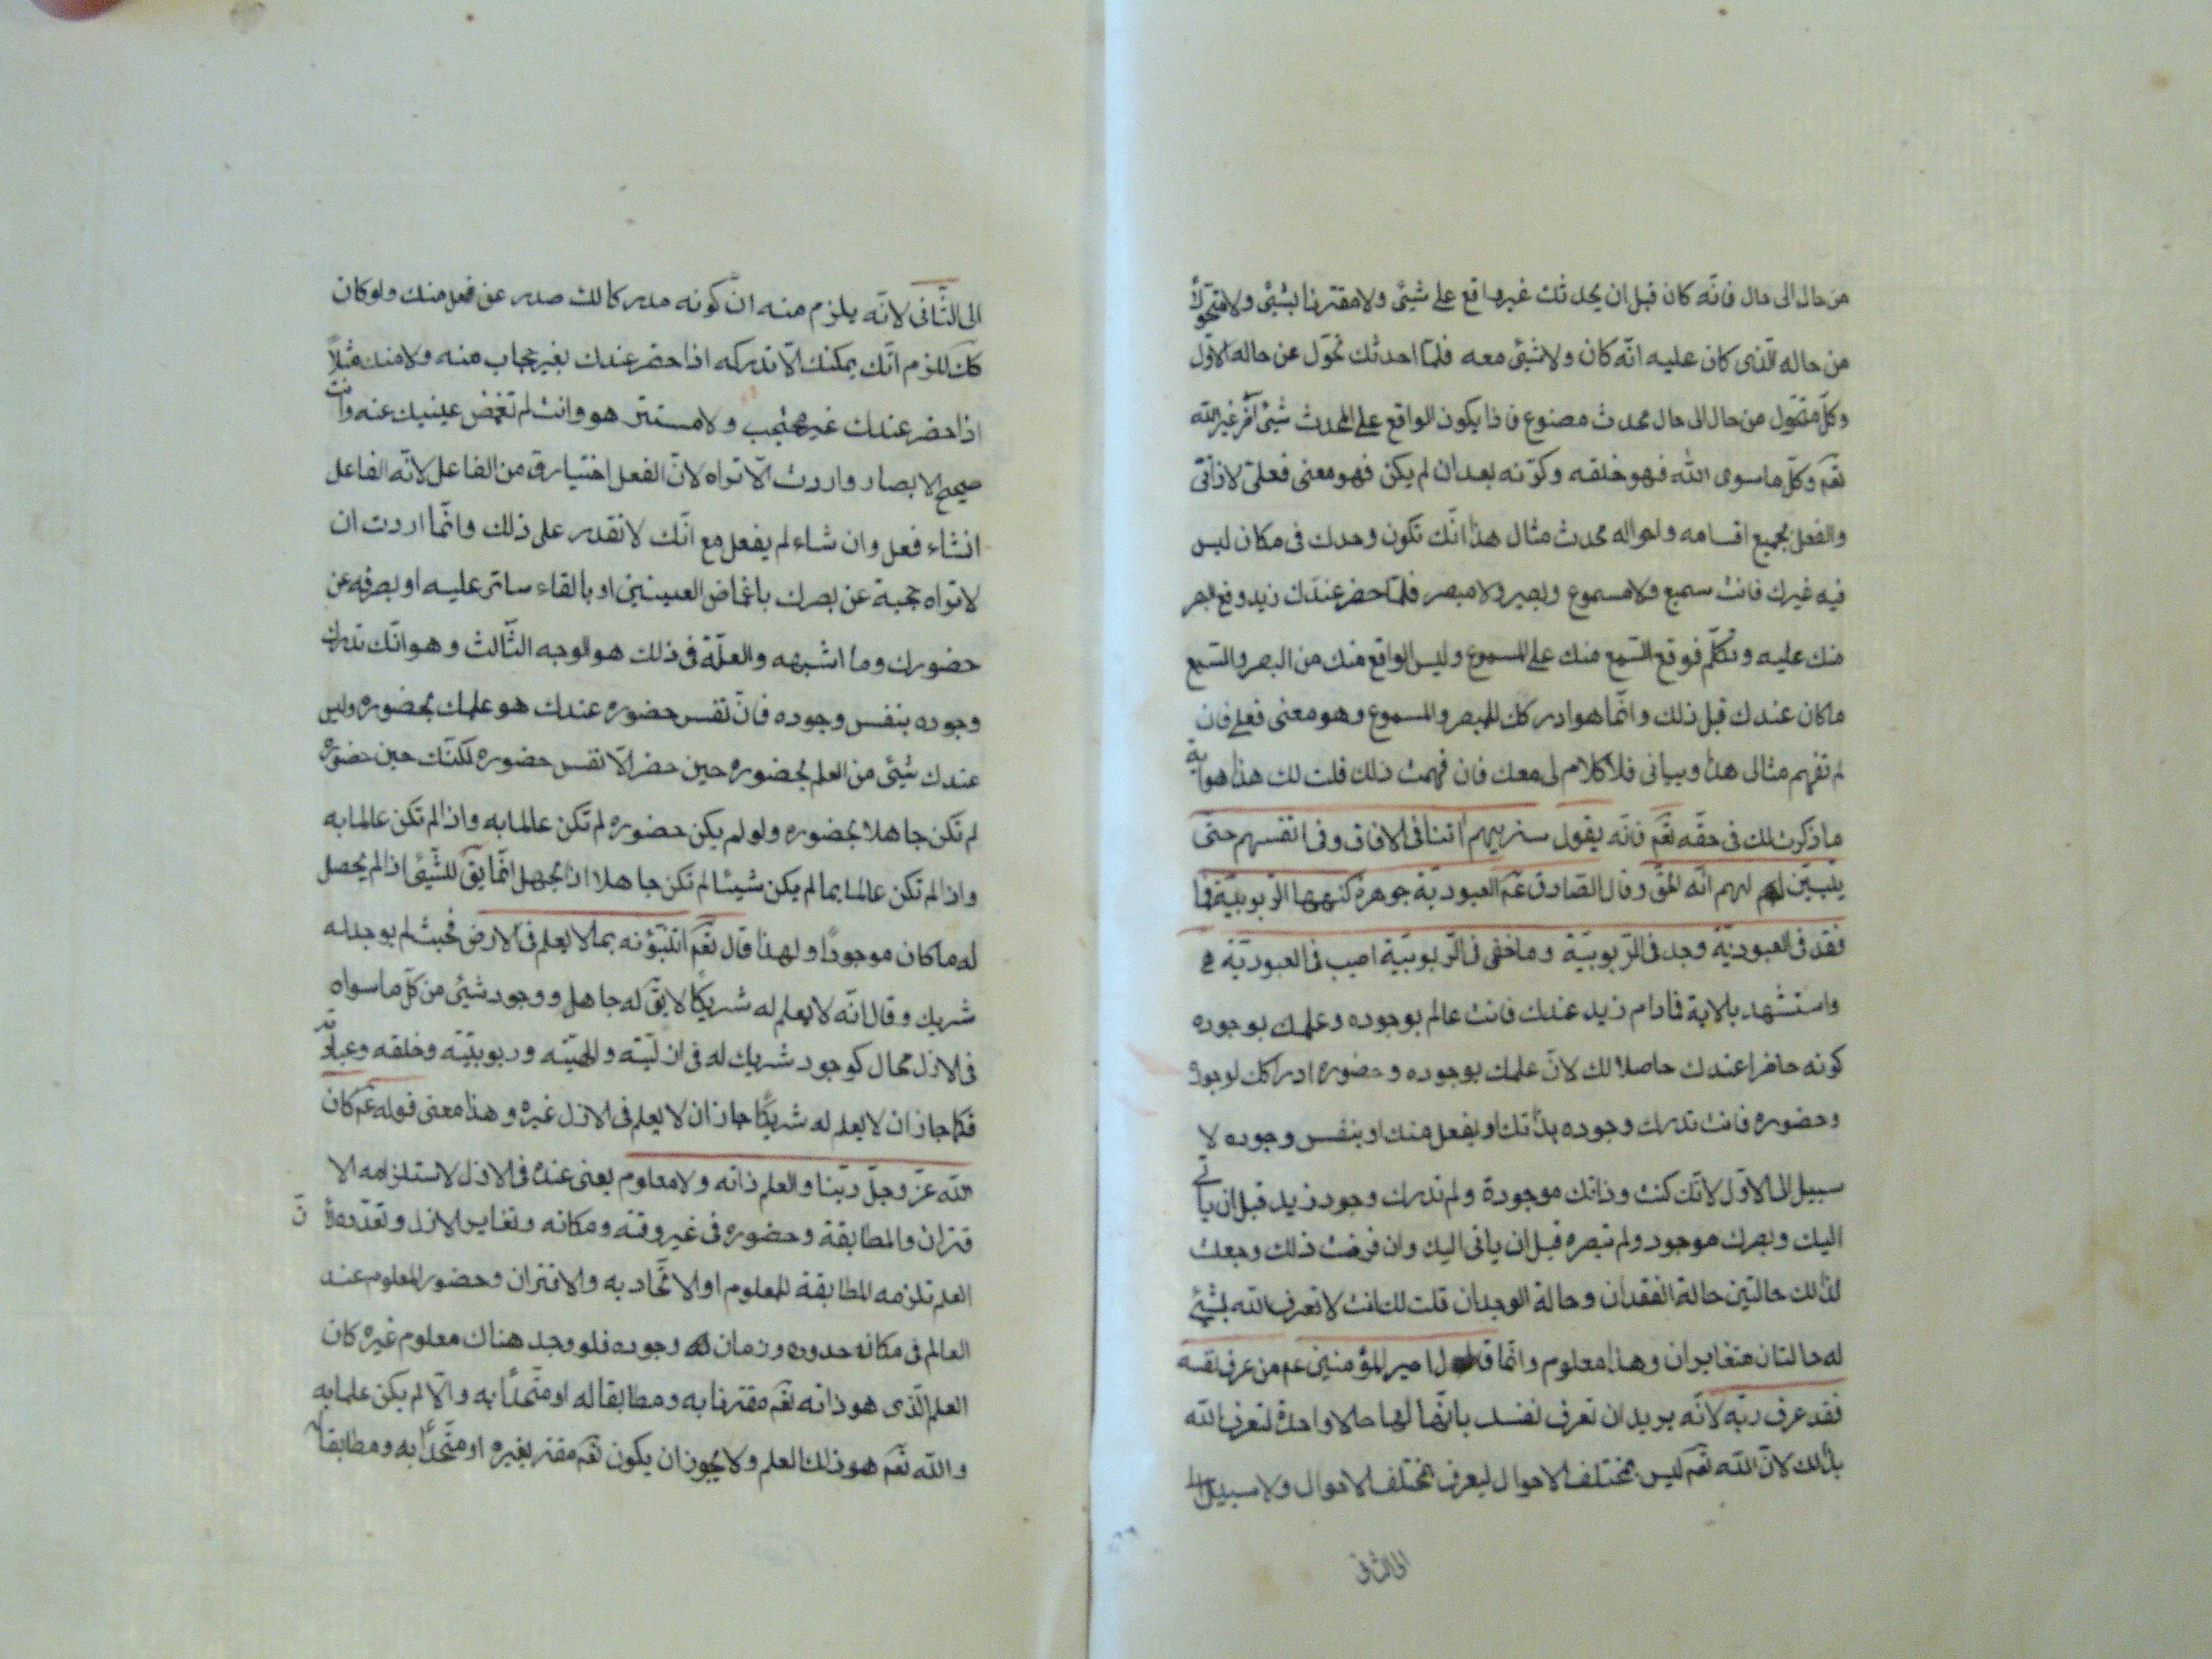 من حال الى حال فانّه كان قبل ان يحدثك غير واقع على شيئ ولا مقترنا بشيئ ولا متحوّلاً
من حاله الّذى كان عليه انّه كان ولا شيئ معه فلمّا احدثك تحوّل عن حاله الاوّل
وكلّ متحوّل من حال الى حال محدث مصنوع فاذا يكون الواقع على المحدث شيئ آخر غير الله
تعم وكلّ ما سوى الله فهو خلقه وكوّنه بعد ان لم يكن فهو معنى فعلىّ لا ذاتىّ
والفعل بجميع اقسامه واحواله محدث مثال هذا انّك تكون وحدك فى مكان ليس
فيه غيرك فانت سميع ولا مسموع وبصير ولا مبصر فلمّا حضر عندك زيد وقع البصر
منك عليه وتكلّم فوقع السّمع منك على المسموع وليس الواقع منك من البصر والسّمع
ما كان عندك قبل ذلك وانّما هو ادراكك للمبصر والمسموع وهو معنى فعلى فان
لم تفهم مثالى هذا وبيانى فلا كلام لى معك فان فهمت ذلك قلت لك هذا هو اية
ما ذكرت لك فى حقّه تعم فانّه يقول سنريهم اتنا فى الافاق وفى انفسهم حتى
يتبيّن لهم انّه الحقّ وقال الصّادق عم العبوديّة جوهرة كنهها الرّبوبيّة فما
فقد فى العبوديّة وجد فى الرّبوبيّة وما خفى فى الرّبوبيّة اصيب فى العبوديّة
واستشهد بالاية فما دام زيد عندك فانت عالم بوجوده وعلمك بوجوده
كونه حاضرا عندك حاصلا لك لانّ علمك بوجوده وحضوره ادراكك لوجوده
وحضوره فانت تدرك وجوده بذاتك او بفعل منك او بنفس وجوده لا
سبيل الى الاوّل لانّك كنت وذاتك موجودة ولم تدرك وجود زيد قبل ان ياتى
اليك وبصرك موجود ولم تبصره قبل ان ياتى اليك وان فرضت ذلك وجعلت
لذلك حالتين حالة الفقدان وحالة الوجدان قلت لك انت لا تعرف الله بشيئ
له حالتان متغايران وهذا معلوم وانّما قال امير المؤمنين عم من عرف نفسه
فقد عرف ربّه لانّه يريد ان تعرف نفسك بانّها لها حالا واحدة لتعرف الله
بذلك لانّ الله تعم ليس بمختلف الاحوال ليعرف بمختلف الاحوال ولا سبيل
الى الثانى
الى الثّانى لانّه يلزم منه انّ كونه مدركا لك صدر عن فعل منك ولو كان
كك للزم انّك يمكنك الّا تدركه اذا حضر عندك بغير حجاب منه ولا منك مثلاً
اذا حضر عندك غير محتجب ولا مستتر هو وانت لم تغمّض عينيك عنه وانت
صحيح الابصار واردت الّا تراه لانّ الفعل اختيارىّ من الفاعل لانّه الفاعل
انشاء فعل وان شاء لم يفعل مع انّك لا تقدر على ذلك وانّما اردت ان
لا تراه حجبته عن بصرك باغماض العينين او بالقاء ساتر عليه او بصرفه عن
حضورك وما اشبهه والعلّة فى ذلك هو الوجه الثّالث وهو انّك تدرك
وجوده بنفس وجوده فانّ نفس حضوره عندك هو علمك بحضوره وليس
عندك شيئ من العلم بحضوره حين حضر الّا نفس حضوره لكنّك حين حضوره
لم تكن جاهلا بحضوره ولو لم يكن حضوره لم تكن عالما به واذا لم تكن عالما به
واذا لم تكن عالما بما لم يكن شيئا لم تكن جاهلا اذ الجهل انّما يقّ للشّيئ اذا لم يحصل
له ما كان موجودًا ولهذا قال تعم اتنبّؤنه بما لا يعلم فى الارض فحيث لم يوجد له
شريك وقال انّه لا يعلم له شريكًا لا يقّ له جاهل ووجود شيئ من كلّ ما سواه
فى الازل محال كوجود شريك له فى ازليّته والهيّته وربوبيّته وخلقه وعبادته
فكما جاز ان لا يعلم له شريكًا جاز ان لا يعلم فى الازل غيره وهذا معنى قوله عم كان
الله عزّ وجلّ ربّنا والعلم ذاته ولا معلوم يعنى عنده فى الازل لاستلزامه الا
قتران والمطابقة وحضوره فى غير وقته ومكانه وتغاير الازل وتعدّده لانّ
العلم تلزمه المطابقة للمعلوم او الاتّحاد به والاقتران وحضور المعلوم عند
العالم فى مكانه حدوده وزمان وجوده فلو وجد هناك معلوم غيره كان
العلم الّذى هو ذاته تعم مقترنا به ومطابقا له او متّحدًا به والّا لم يكن علما به
والله تعم هو ذلك العلم ولا يجوز ان يكون تعم مقتربغيره او متّحدًا به ومطابقا